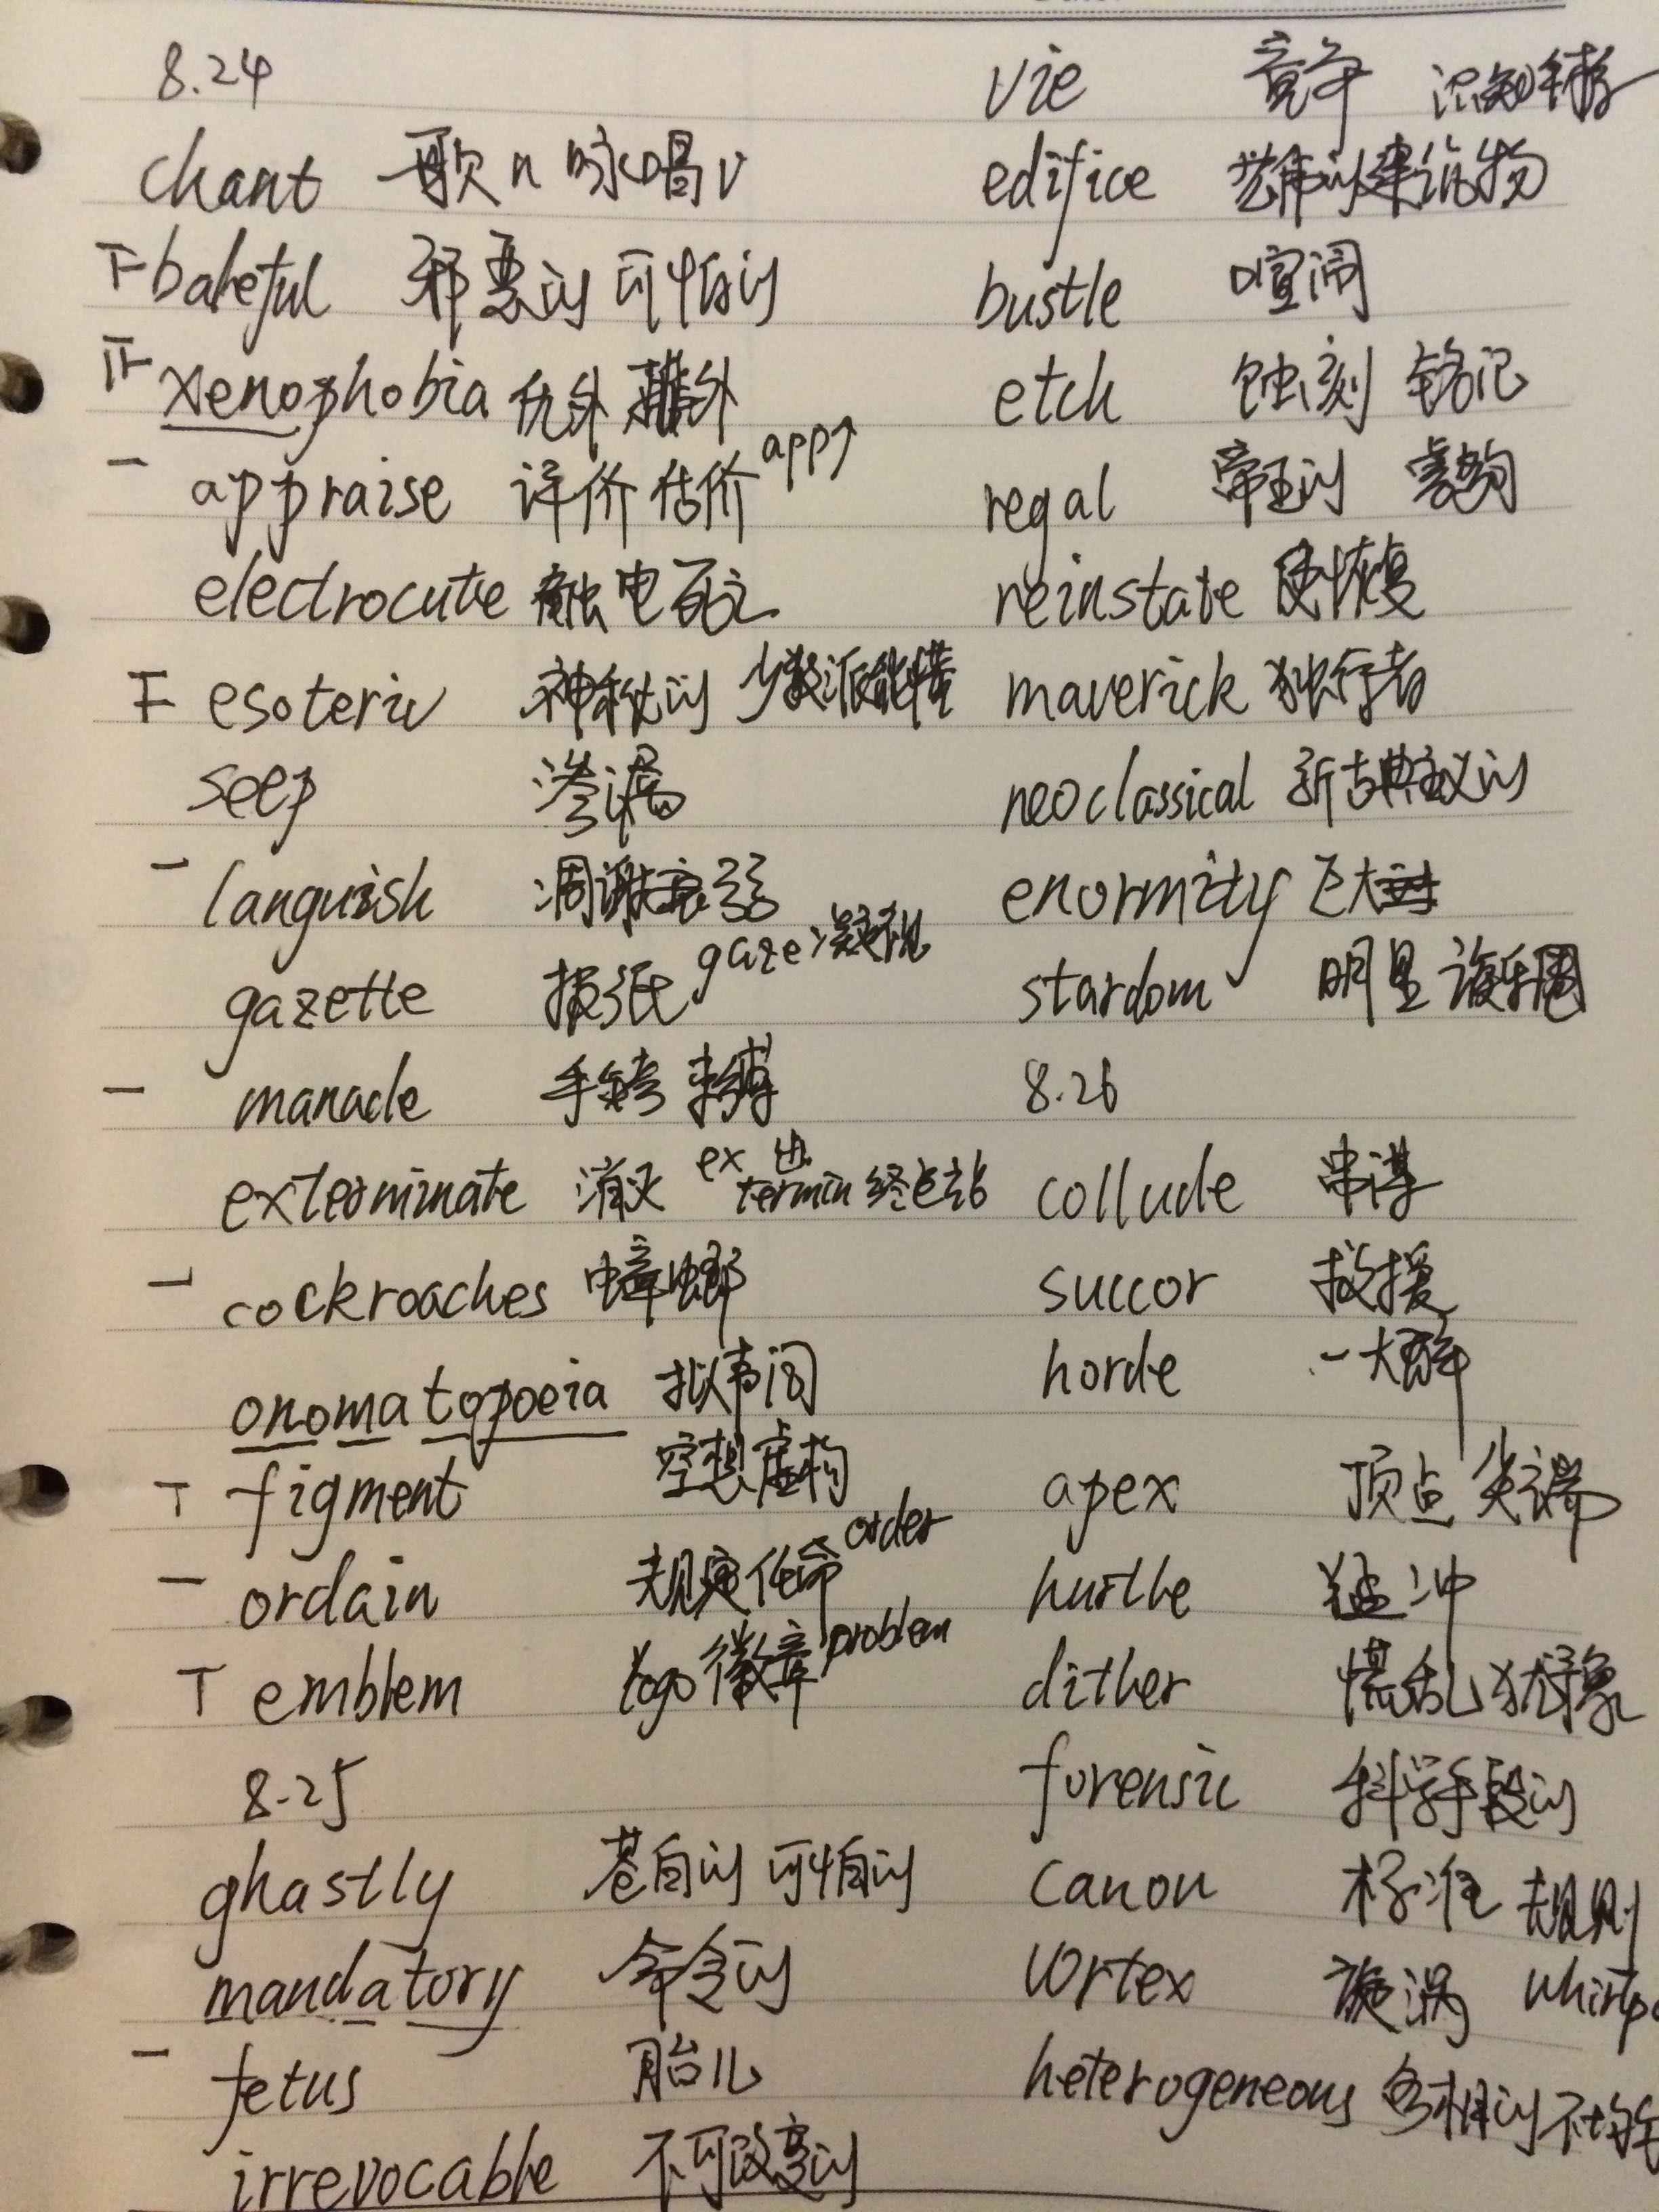 8.24
chant 歌 n 咏唱 v
baleful 邪恶的 可怕的
xenophobia 仇外 排外
appraise 评价 估价 app↑
electrocute 触电死亡
esoteric 神秘的 少数派能懂
seep 渗漏
languish 凋谢 衰弱
gazette 报纸 gaze 凝视
manacle 手铐 束缚
exterminate 消灭 ex 出 termin 终点站
cockroaches 蟑螂
onomatopoeia 拟声词
figment 空想 虚构
ordain 规定 任命 order
emblem logo 徽章 problem
8.25
ghastly 苍白的 可怕的
mandatory 命令的
fetus 胎儿
irrevocable 不可改变的
vie 竞争
edifice 建筑物
bustle 喧闹
etch 蚀刻 铭记
regal 帝王的
reinstate 使恢复
maverick 独行者
neoclassical 新古典主义的
enormity 巨大
stardom 明星 娱乐圈
8.26
collude 串谋
succor 救援
horde 一大群
apex 顶点 尖端
hurtle 猛冲
dither 慌乱 犹豫
forensic 科学手段的
canon 标准 规则
vortex 旋涡
heterogeneous